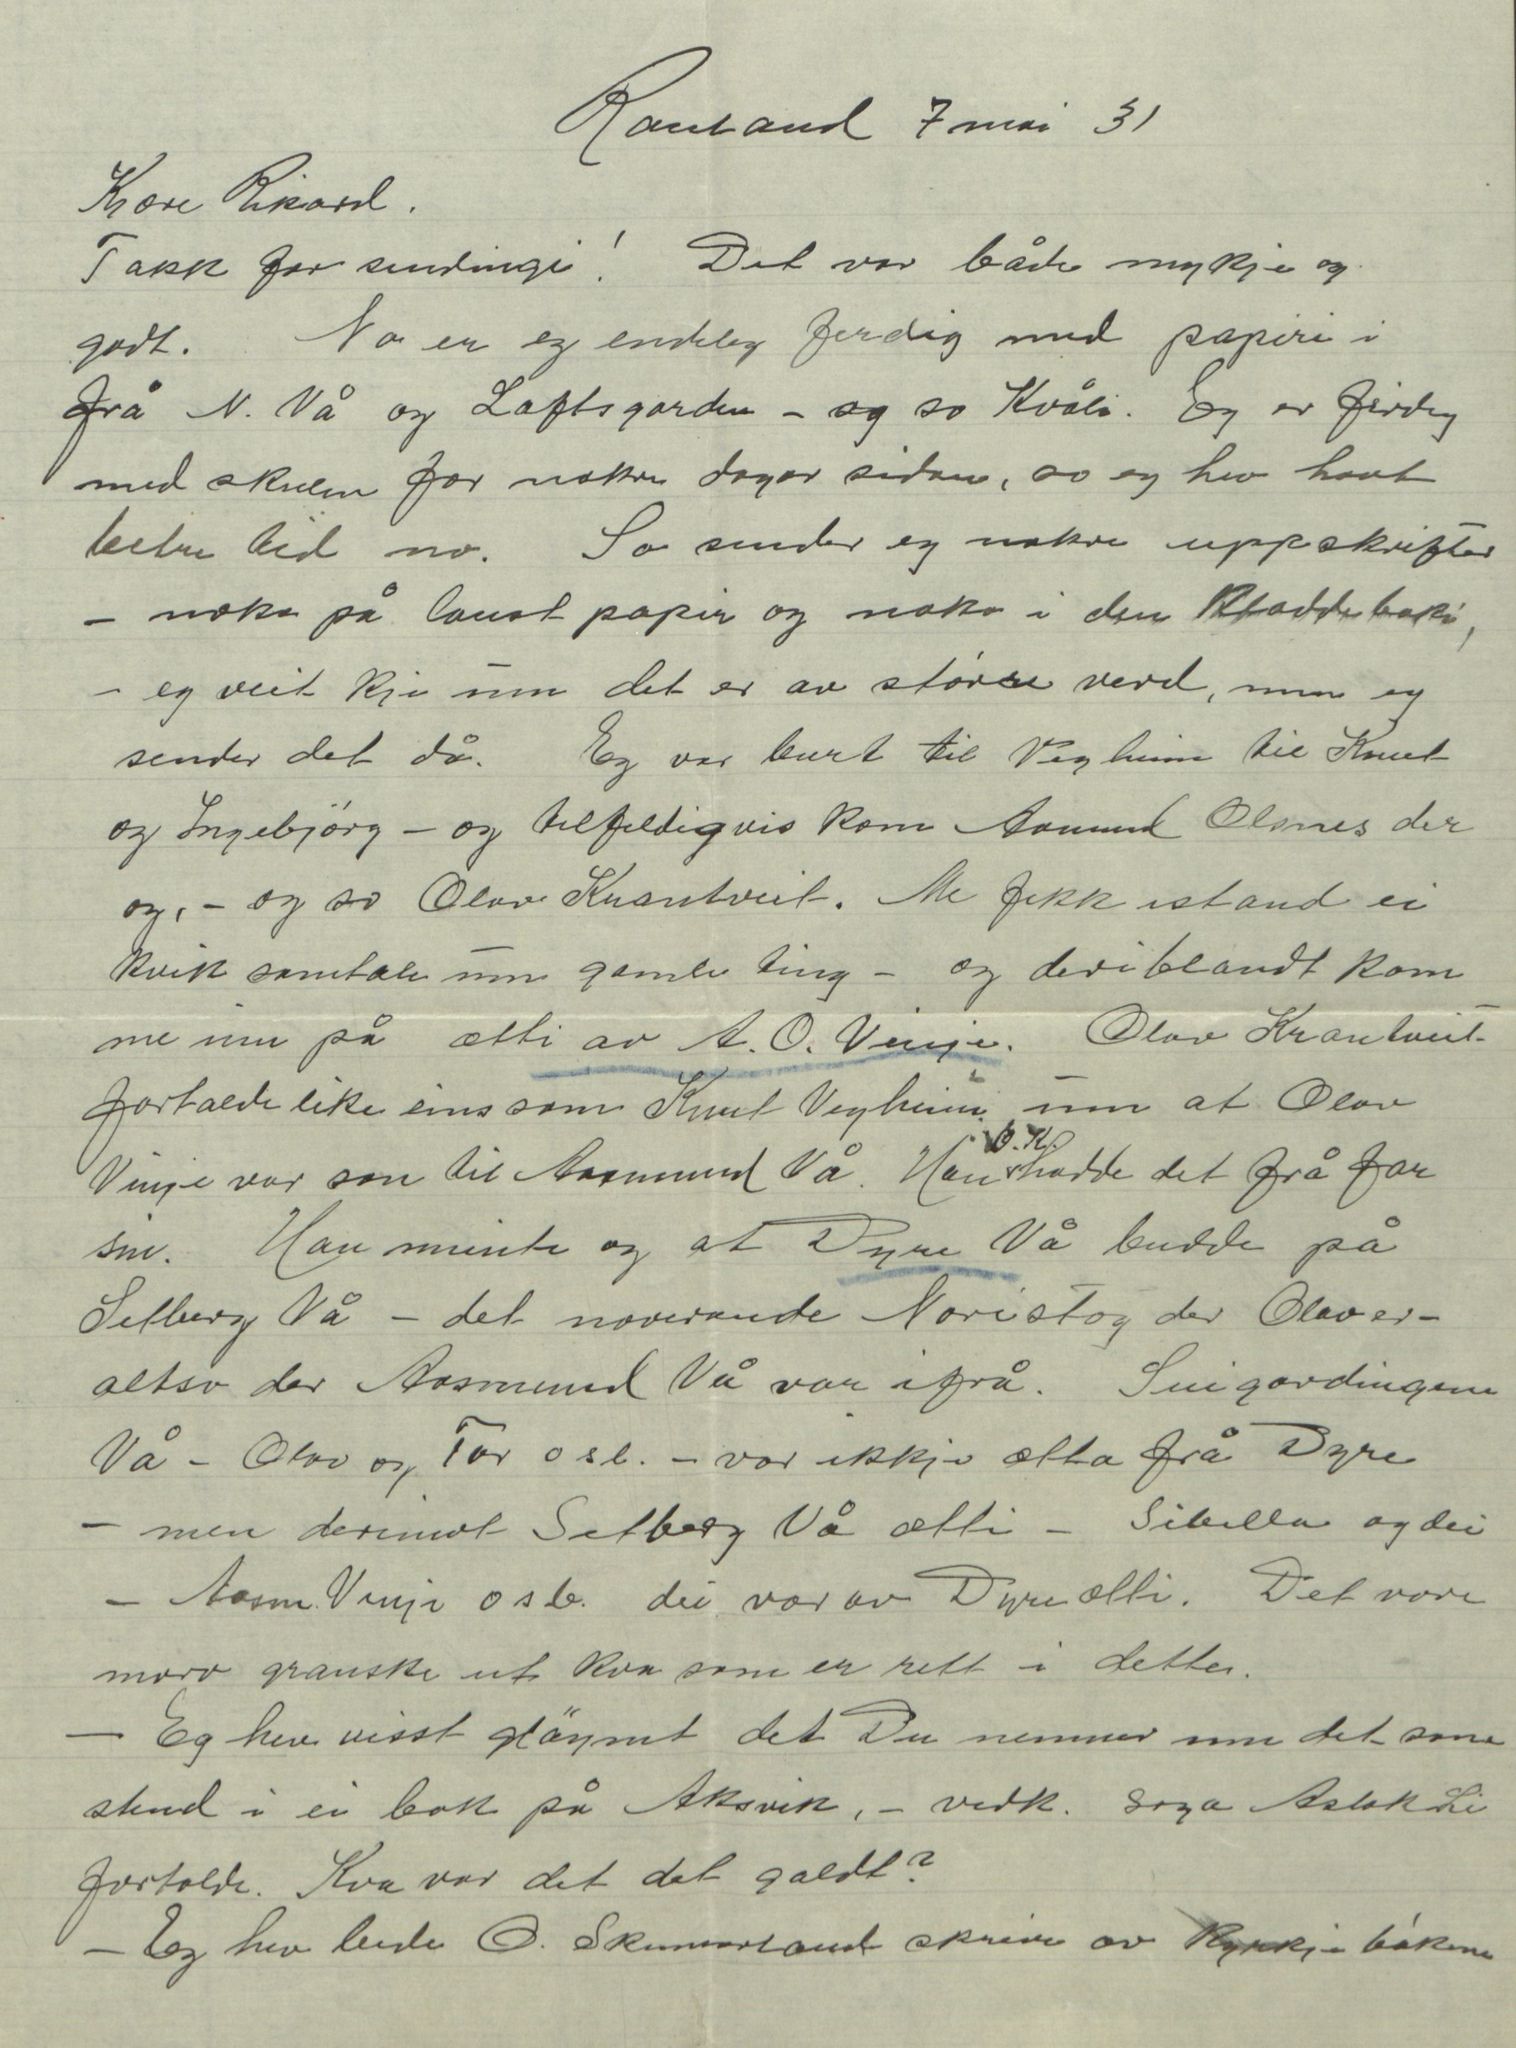 Rauland 7 mai 31
Kjære Rikard.
Takk for sendingi! Det var både mykje og
godt. No er eg endeleg ferdig med papiri i
frå N. Vå og Loftsgarden – og so Kvåli. Eg er ferdig
med skulen for nokre dagar sidan, so eg hev havt
betre tid no. So sender eg nokre uppskrifter
– noko på laust papir og noko i den kladdeboki,
– eg veit kje um det er av større verd, men eg
sender det då. Eg var burt til Vegheim til Knut
og Ingebjörg – og tilfeldigvis kom Aasmund Olsnes der
og, – og so Olav Krantveit. Me fekk istand ei
kvik samtale um gamle ting – og deriblandt kom
me inn på ætti av A. O. Vinje. Olav Krantveit
fortalde like eins som Knut Vegheim um at Olav
Vinje var son til Aasmund Vå. Han O. Kr. hadde det frå far
sin. Han meinte og at Dyre Vå budde på
Selberg Vå – det noverande Noristog der Olav er –
altso der Aasmund Vå var ifrå. Suigardingene
Vå – Olav og Tor osb. – var ikkje ætta frå Dyre
– men derimot Selberg Vå ætti – Sibilla og dei
– Aasm. Vinje osb. dei var av Dyreætti. Det vore
moro granske ut kva som er rett i dette.
– Eg hev visst glöymt det Du nemner um det som
stend i ei bok på Aksvik, – vedk. soga Aslak Li
fortalde. Kva var det det galdt?
– Eg hev bede O. Skunnarland skrive av kyrkjebökene